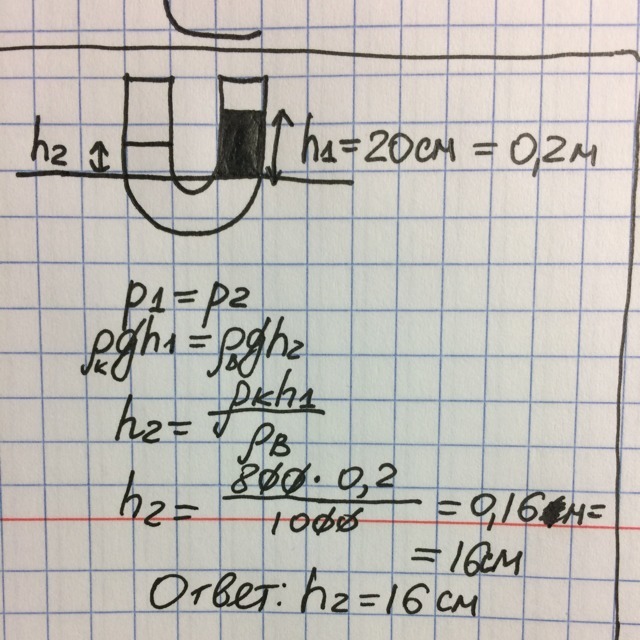 h₂ h₁=20см = 0,2м
p₁ = p₂
ρкgh₁ = ρвgh₂
h₂ = ρкh₁ / ρв
h₂ = 800 · 0,2 / 1000 = 0,16 м =
= 16см
Ответ: h₂ = 16 см